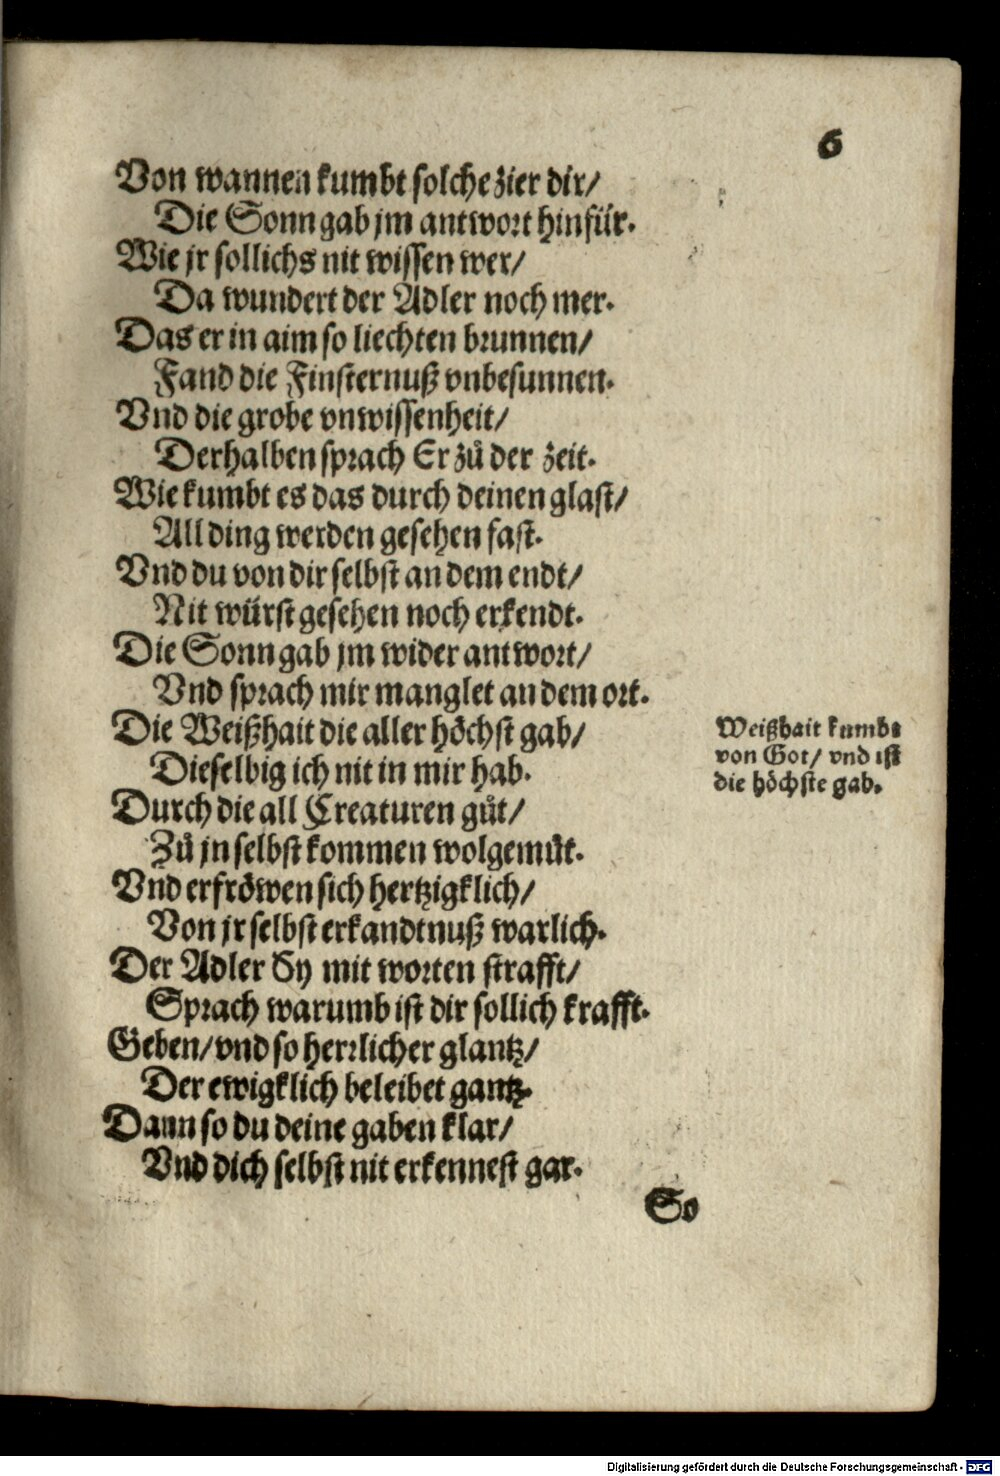 6
Von wannen kumbt solche zier dir/
Die Sonn gab jm antwort hinfür.
Wie jr sollichs nit wissen wer/
Da wundert der Adler noch mer.
Das er in aim so liechten brunnen/
Fand die Finsternuß vnbesunnen.
Vnd die grobe vnwissenheit/
Derhalben sprach Er zů der zeit.
Wie kumbt es das durch deinen glast/
All ding werden gesehen fast.
Vnd du von dir selbst an dem endt/
Nit würst gesehen noch erkendt.
Die Sonn gab jm wider antwort/
Vnd sprach mir manglet an dem ort.
Die Weißhait die aller höchst gab/
Dieselbig ich nit in mir hab.
Durch die all Creaturen gůt/
Zů jn selbst kommen wolgemůt.
Vnd erfröwen sich hertzigklich/
Von jr selbst erkandtnuß warlich.
Der Adler Sy mit worten strafft/
Sprach warumb ist dir sollich krafft.
Geben/ vnd so herrlicher glantz/
Der ewigklich beleibet gantz.
Dann so du deine gaben klar/
Vnd dich selbst nit erkennest gar.
So
Weißhait kumbt
von Got/ vnd ist
die höchste gab.
Digitalisierung gefördert durch die Deutsche Forschungsgemeinschaft - DFG